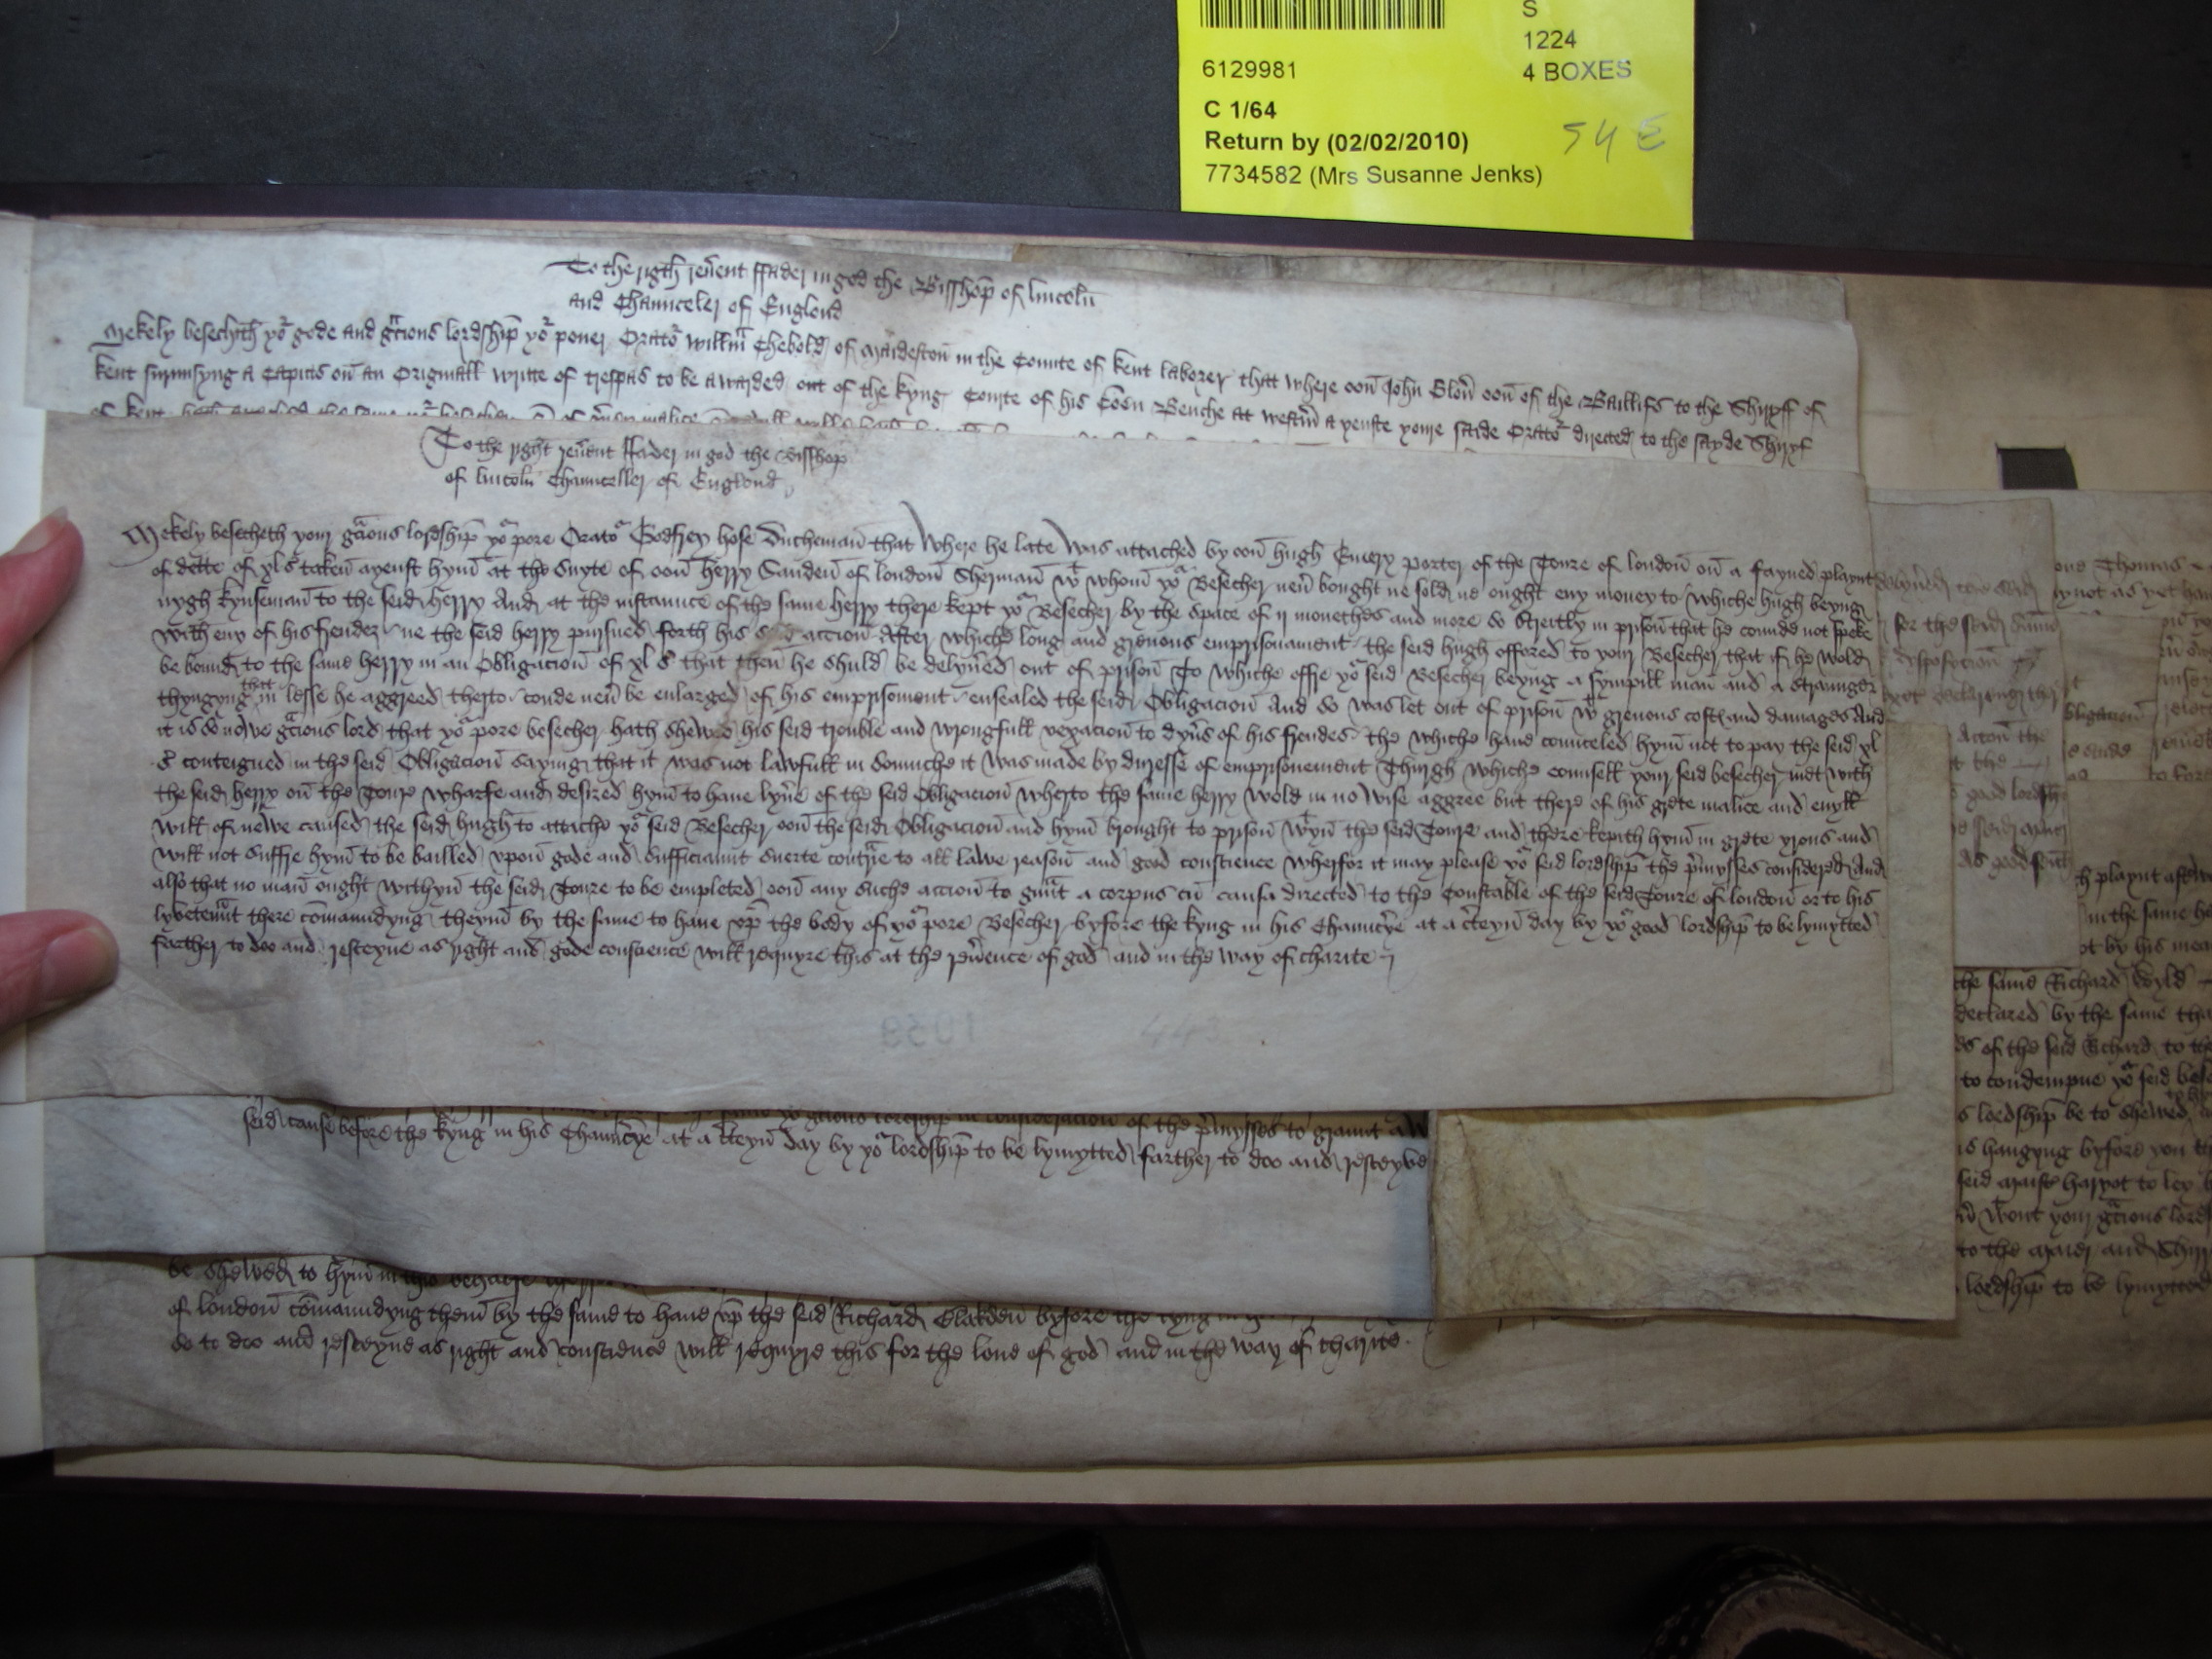 S
1224
6129981
4 BOXES
C 1/64
Return by (02/02/2010)
S4E
7734582 (Mrs Susanne Jenks)
To the rigth reũent ffader in god the Bisshop̃ of lincoln̄
and Chaunceler of Englond
Mekely besechyth yor gode and gracious lordship̃ yor pouer Orator Willm̄ Chebold of Maideston̄ in the Counte of Kent laborer that where oon̄ John Slon̄ oon̄ of the Baillifs to the Shyrff of
Kent surmisyng a Capias on̄ an Originall writte of trespas to be awarded out of the Kyng Courte of his Cōen Benche at Westm̄ ayenste youre saide Orator directed to the sayde Shyrf
To the right reũent ffader in god the Bisshop
of lincoln̄ Chaunceller of Englond
Mekely besecheth your gracious lordship̃ yor pore Orator Godfrey hose Ducheman̄ that Where he late Was attached by oon̄ hugh Emery porter of the Toure of london̄ on̄ a fayned playnt
of dette of xl s taken̄ ayenst hym̄ at the suyte of oon̄ herry Sanden̄ of london̄ Sherman̄ wt whom̄ yor Besecher neũ bought ne sold ne ought eny money to Whiche hugh beyng
nygh kynseman̄ to the seid herry And at the instaunce of the same herry there kept yor Besecher by the space of ij monethes and more so streitly in prison̄ that he coude not speke
with eny of his frendez ne the seid herry pursued forth his seid accion̄ After whiche long and greuous emprisonament the seid hugh offored to your Besecher that if he wold
be bound to the same herry in an Obligacion̄ of xl s that then̄ he shuld be delyũed out of prison̄ To whiche offre yor seid Besecher beyng a sympill man̄ and a straunger
thyngyng that in lesse he aggreed therto coude neũ be enlarged of his emprisoment ensealed the seid Obligacion̄ And so was let out of prison̄ wt greuous cost and damages And
it is so nowe gracious lord that yor pore besecher hath shewed his seid trouble and wrongfull vexacion̄ to dyũs of his frendes the whiche haue counceled hym̄ not to pay the seid xl
s conteigned in the seid Obligacion̄ saying that it was not lawfull in somuche it was made by duresse of emprisonement Thurgh whiche counsell your seid besecher mett with
the seid herry on̄ the Toure wharfe and desired hym̄ to haue lyũe of the seid Obligacion̄ wherto the same herry wold in no wise aggree but there of his grete malice and euyll
will of newe caused the seid hugh to attache yor seid Besecher oon̄ the seid Obligacion̄ and hym̄ brought to prison̄ wtyn̄ the seid Toure and there kepith hym̄ in grete yrons and
will not suffre hym̄ to be bailled vpon̄ gode and sufficiaunt suerte contrie to all lawe reason̄ and good conscience Wherfor it may please yor seid lordship̃ the p̃mysses considered And
also that no man̄ ought withyn̄ the seid Toure to be empleted oon̄ any suche accion̄ to graunt a corpus cū causa directed to the Constable of the seid Toure of london̄ or to his
lyvetenn̄t there cōmaundyng theym̄ by the same to haue vp̃ the body of yor pore Besecher byfore the kyng in his Chauncr̄e at a c̃teyn̄ day by yor good lordship̃ to be lymytted
farther to doo and resceyue as right and gode conscience will requyre this at the reũence of god and in the way of charite
of the p̃mysses to graunt a w
seid cause before the kyng in his Chauncr̄ye at a c̃teyn̄ day by yor lordship̃ to be lymytted farther to doo and resceyve
be shewed to hym̄ in this
of london̄ cōmaundyng them̄ by the same to haue vp̃ the seid Richard Blakden̄ byfore the kyng
so to doo and resceyue as right and conscience will requyre this for the loue of god and in the way of charite
one Thomas
ynot as yet
for the seid
disposicion̄
bligacion̄
Accon̄ the
good lordship
as good
h playnt
in the same
ot by his mea
the same Richard Wyld
declared by the same tha
of the seid Richard to the
to condempne yor seid bese
lordship̃ be to shewed
is hangyng byfore you
seid
wtout your gracious lord
to the Maier and Shir
lordship̃ to be lymytted